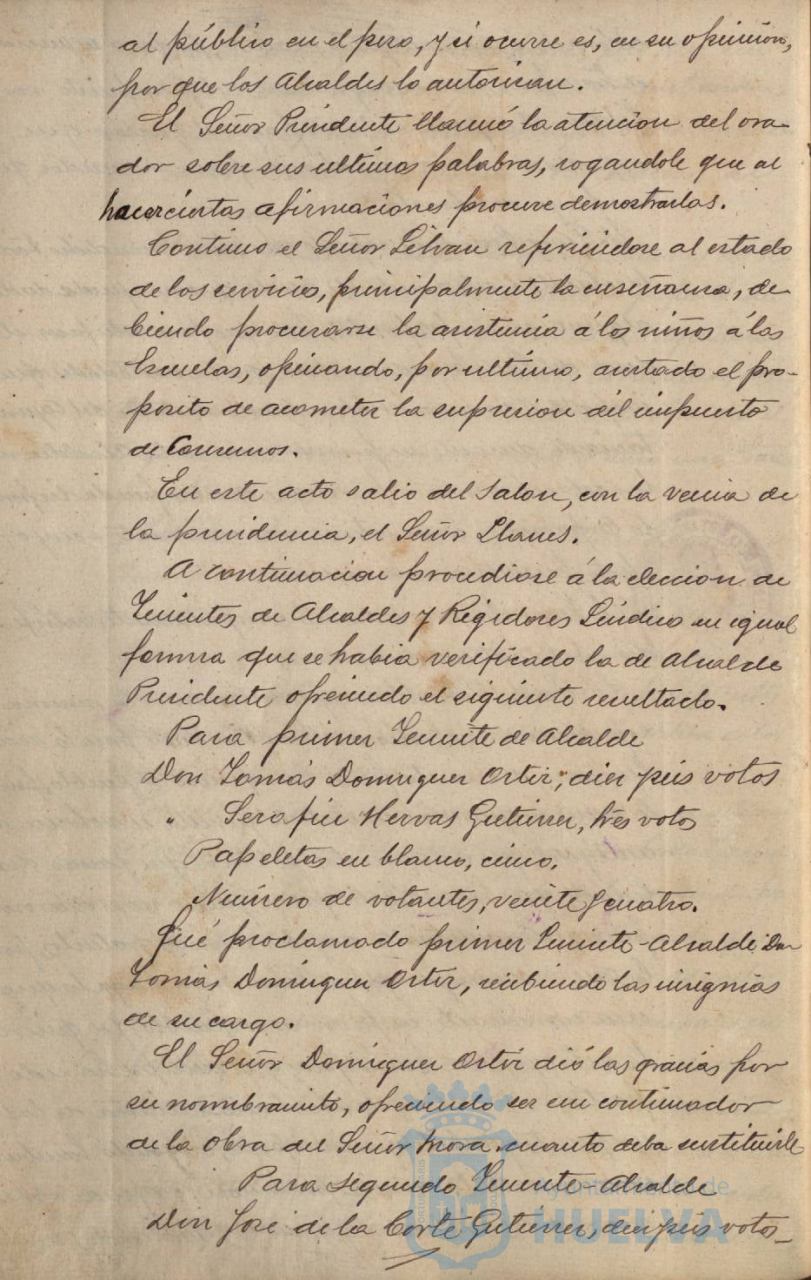 al público en el peso, y si ocurre es, en su opinión,
por que los Alcaldes lo autorizan.
El Señor Presidente llamó la atencion del ora-
dor sobre sus ultimas palabras, rogandole que al
hacer ciertas afirmaciones procure demostrarlas.
Continuo el Señor Silvan refiriéndose al estado
de los servicios, principalmente la enseñanza, de-
biendo procurarse la asistencia á los niños á las
Escuelas, opinando, por ultimo, acertado el pro-
posito de acometer la supresion del impuesto
de Consumos.
En este acto salio del Salon, con la venia de
la presidencia, el Señor Llanes.
A continuacion procediose á la eleccion de
Tenientes de Alcaldes y Regidores Síndico en igual
forma que se habia verificado la de Alcalde
Presidente ofreciendo el siguiente resultado.
Para primer Teniente de Alcalde
Don Tomás Dominguez Ortiz, diez y seis votos
" Serafin Hervas Gutierrez, trés votos
Papeletas en blanco, cinco.
Número de votantes, veinte y cuatro.
Fué proclamado primer Teniente-Alcalde Don
Tomás Dominguez Ortiz, recibiendo las insignias
de su cargo.
El Señor Domínguez Ortiz dió las gracias por
su nombramiento, ofreciendo ser un continuador
de la obra del Señor Mora cuanto deba sustituirle
Para segundo Teniente-Alcalde
Don José de la Corte Gutierrez, diez y seis votos_
de
HUELVA